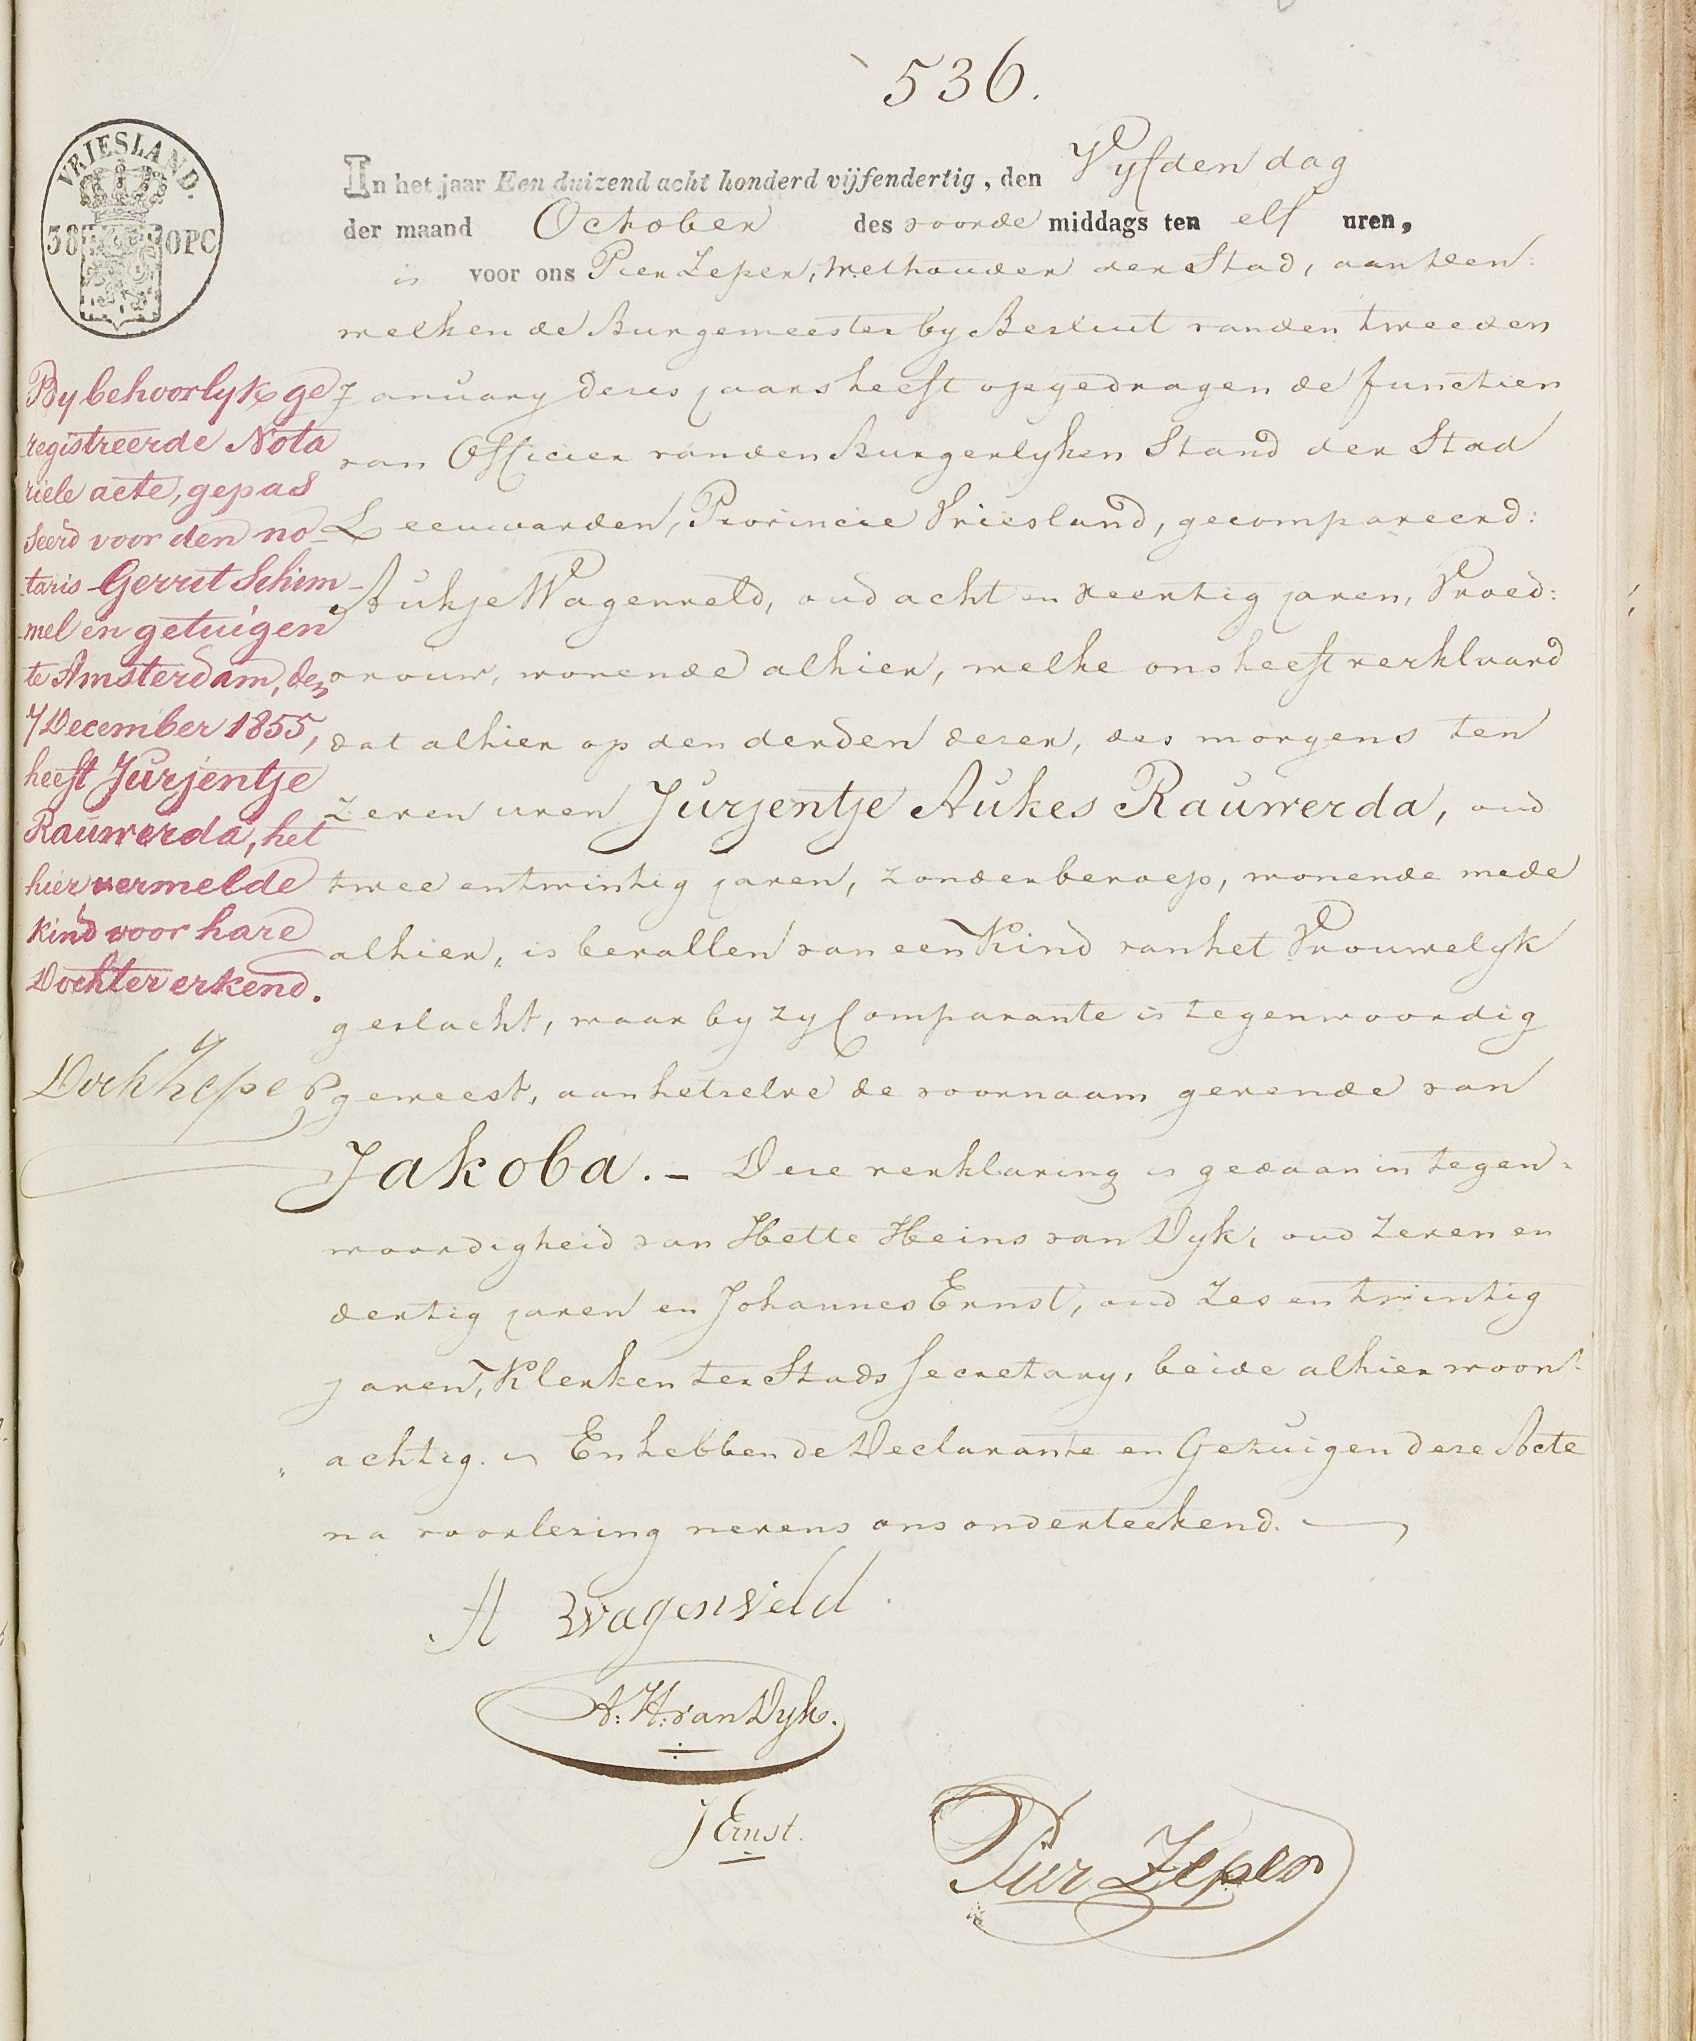 536.
VRIESLAND.
38 OPC
In het jaar Een duizend acht honderd vijfendertig, den Vyfden dag
der maand October des voorde middags ten elf uren,
is voor ons Pier Zeper, Wethouder der Stad, aan den:
welken de Burgemeester by Besluit van den tweeden
January dezes jaars heeft opgedragen de functien
van Officier van den Burgerlyken Stand der Stad
Leeuwarden, Provincie Vriesland, gecompareerd:
Aukje Wagenveld, oud acht en veertig jaren, Vroed:
vrouw, wonende alhier, welke ons heeft verklaard
dat alhier op den derden dezer, des morgens ten
zeven uren Jurjentje Aukes Rauwerda, oud
twee en twintig jaren, zonder beroep, wonende mede
alhier, is bevallen van een Kind van het Vrouwelyk
geslacht, waar by zy Comparante is tegenwoordig
geweest, aan hetzelve de voornaam gevende van
Jakoba. - Deze verklaring is gedaan in tegen-
woordigheid van Hette Heins van Dyk, oud zeven en
dertig jaren en Johannes Ernst, oud zes en twintig
jaren, Klerken ter Stads Secretary, beide alhier woon-
achtig. En hebben de Declarante en Getuigen deze Acte
na voorlezing nevens ons onderteekend.
A Wagenveld
A: H: van Dyk.
J Ernst.
Pier Zeper
By behoorlyk ge
registreerde Nota
riele acte, gepas
seerd voor den no-
taris Gerrit Schim-
mel en getuigen
te Amsterdam, den
7 December 1855,
heeft Jurjentje
Rauwerda, het
hier vermelde
kind voor hare
Dochter erkend.